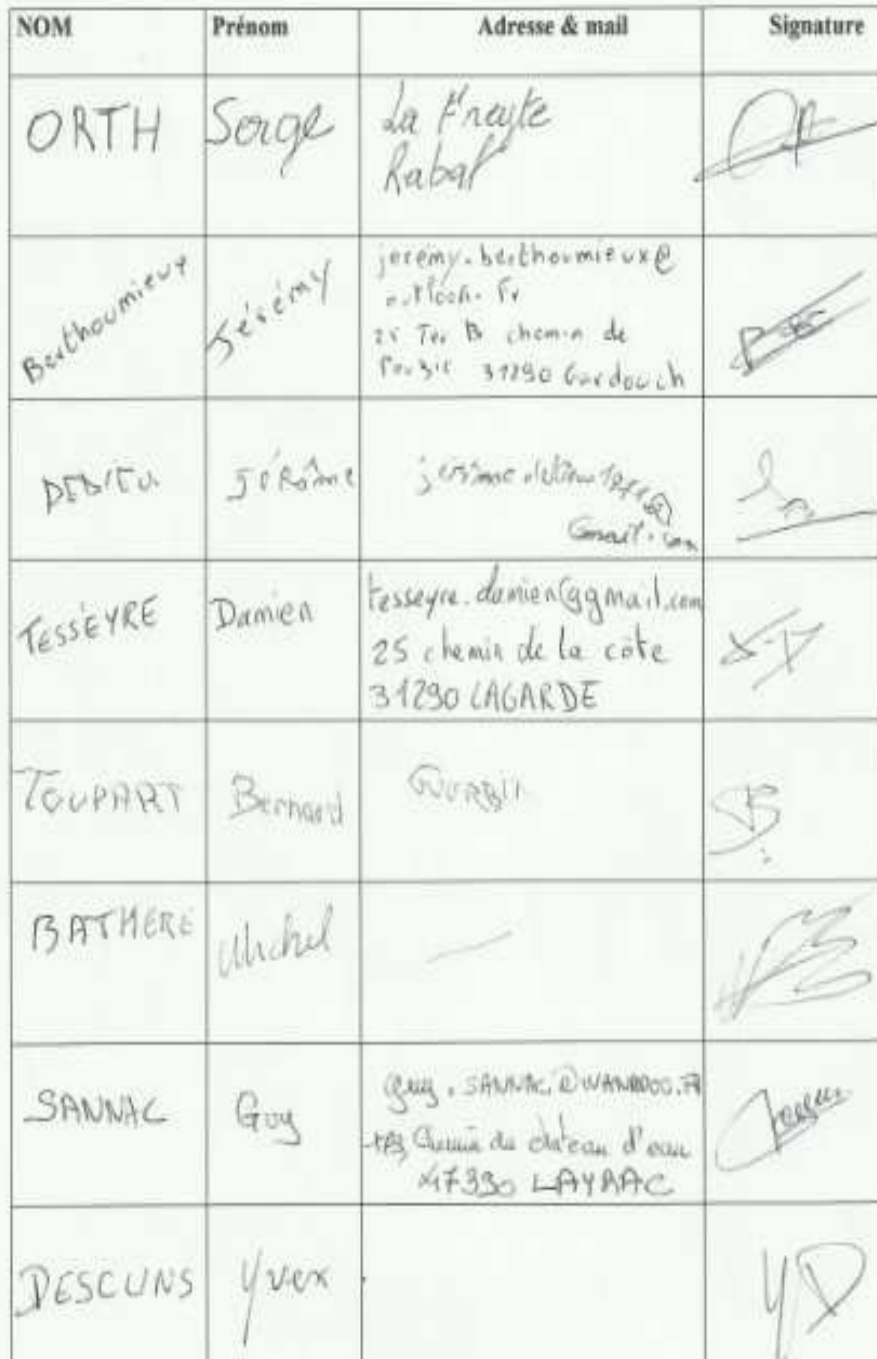 NOM Prénom Adresse & mail Signature
ORTH Serge La Freyte
Rabat
Berthoumieux Jérémy jeremy.berthoumieux@
outlook.fr
25 Ter B chemin de
31290 Gardouch
DEBIEU Jérôme
Gmail.com
TESSEYRE Damien tesseyre.damien@gmail.com
25 chemin de la côte
31290 LAGARDE
TOUPART Bernard GOURBIT
BATHERE Michel
SANNAC Guy guy.SANNAC@WANADOO.FR
Chemin du château d'eau
47390 LAYRAC
DESCUNS Yvex YD